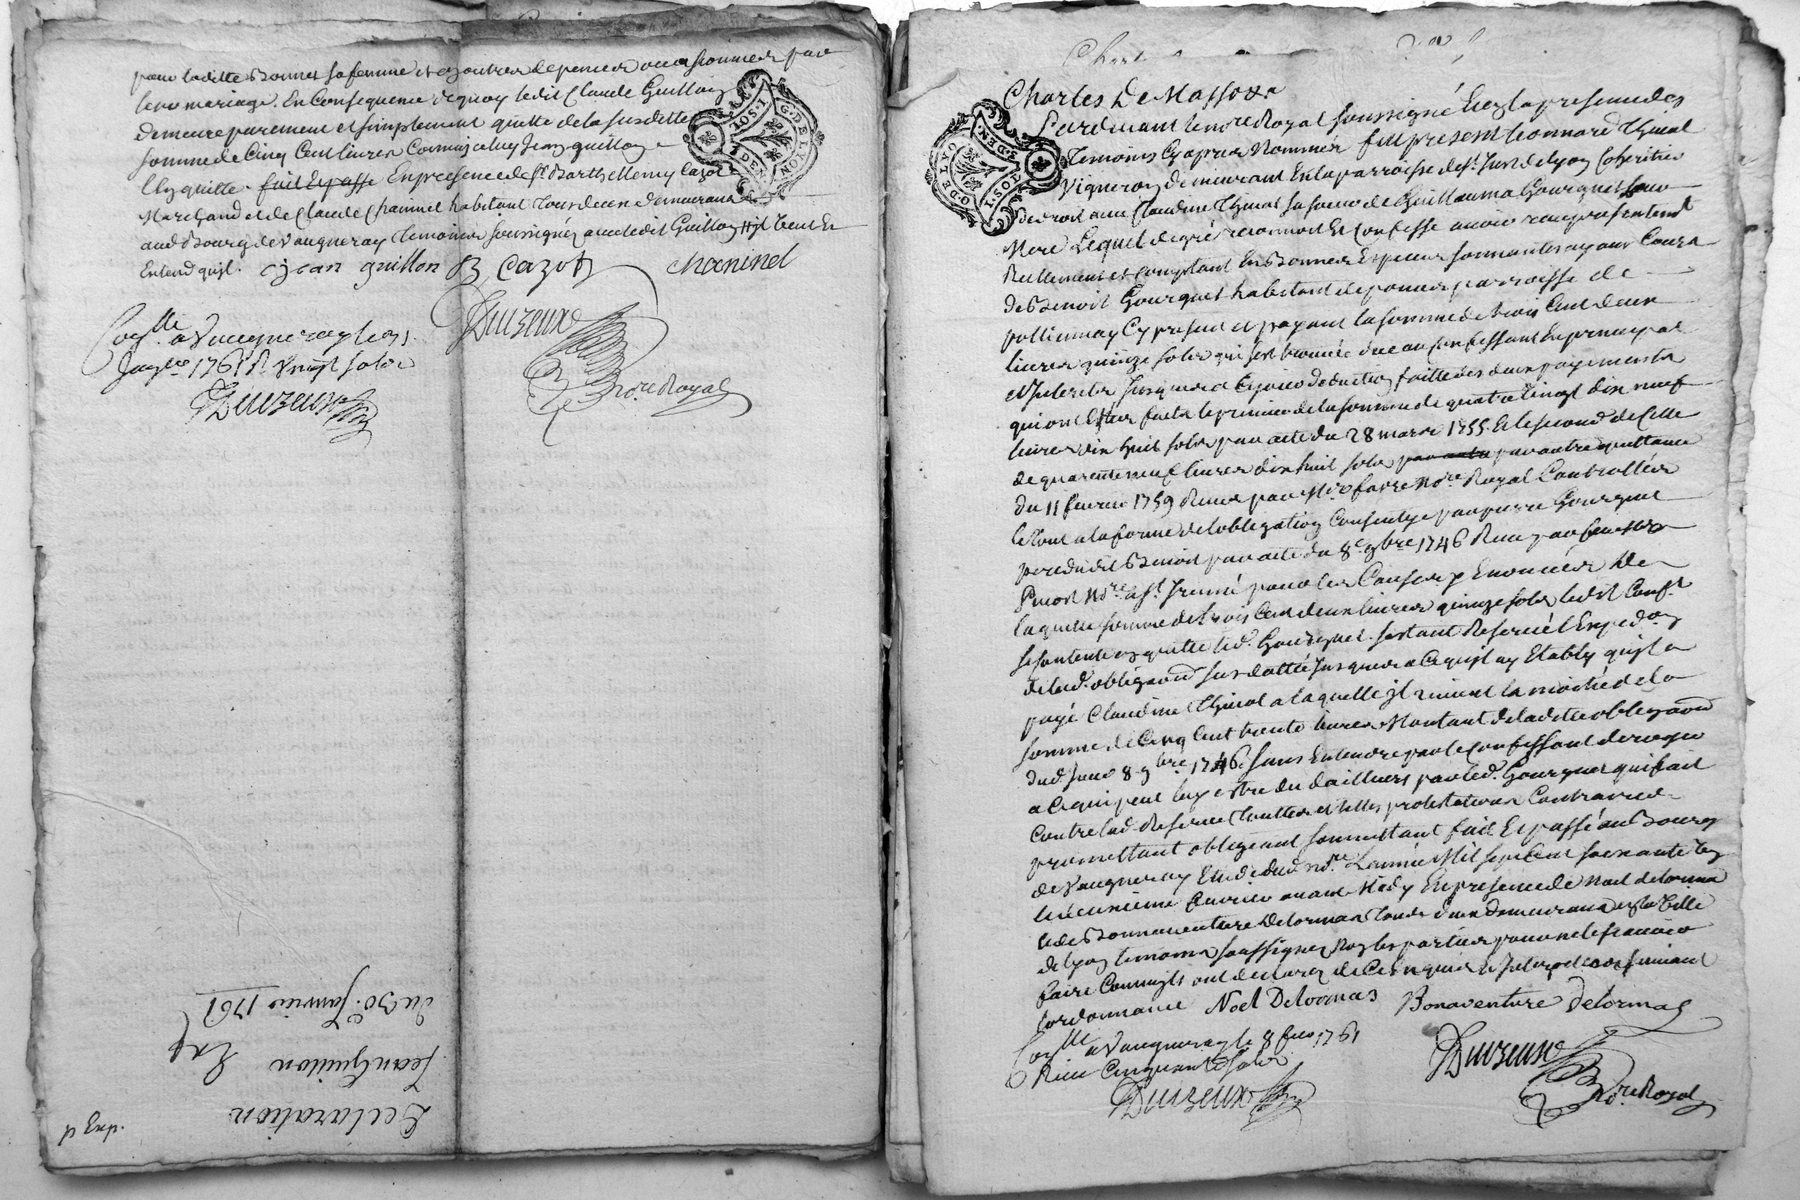 pour laditte Bonnet sa femme et en autres depences occasionnées par
leur mariage. En Consequence dequoy ledit Claude Guillon
demeure purement et simplement quitte de la susditte
somme de Cinq Cent livres Comm jceluy Jean guillon
l'en quitte. fait Et passé En presence de Sr. Barthellemy Cazot
Marchand et de Claude Chaninel habitant tous deux demeurants
aud Bourg de Vaugneray temoins soussignés avec ledit Guillon
Entend quil. Jean guillon B Cazot chaninel
Conllé a Vaugneray le 31
Janvier 1761 R. Vingt sols
Duizeux
Duizeux
Nore Royal
Declaration
Jean Guillon
Exp
du 30e. Janvier 1761
G. DE LYON
1. SOL
DEN
Charles De Masso
Pardevant le nore Royal soussigné Et En la presence des
temoins Cy apres Nommés fut present Leonnard Thinal
Vigneron demeurant En la parroisse de St. Just de lyon Coheritier
de droit avec Claudine Thinal sa soeur de Guillauma Gourguet leur
Mere Lequel de gré reconnoit Et Confesse avoir reçu presentement
Reellement et Comptant En Bonnes Especes sonnantes ayant Cours
de Benoit Gourguet habitant de parroisse de
pollionnay Cy present et payant la somme de trois Cent deux
livres quinze sols qui s'est trouvée due au Confessant En principal
et Interets Jusques a Ce jour deduction faitte des deux payements
qui ont Etés faits le premier de la somme de quatre Vingt dix neuf
livres dix huit sols par acte du 28 mars 1755. Et le second de Celle
de quarente neuf livres dix huit sols par acte par autre quittance
du 11 fevrier 1759 Reçue par Me. favre Nore. Royal Controllées
le tout a la forme de l'obligation Consentye par pierre Gourguet
pere dudit Benoit par acte du 8e 9bre 1746 Reçu par feu Me
Pinot Nre. a St. Jrenné pour les Causes y Enoncées De
laquelle somme de trois Cent deux livres quinze sols ledit Confst.
se Contente En quitte led. Gourguet. sestant Reservé l'Exped.on
de lad. obligaon sus dattée Jusques a Ce quil ay Etably quil a
payé Claudine Thinal a laquelle jl revient la moitié de la
somme de Cinq Cent trente livres Montant de laditte obligaon
dud. Jour 8 9bre. 1746. sans Entendre par le Confessant deroger
a Ce qui peut luy estre du d'ailleurs par led. Gourguet qui fait
Contre lad. Reserve touttes et telles protestations Contraires.
promettant obligeant soumettant fait Et passé au Bourg
de Vaugneray Etude dud. Nre. L'année Mil sept Cent soixante Un
le deuxieme fevrier avant Midy En presence de Noel delormas
et de Bonnaventure Delormas tous deux demeurants en la Ville
de lyon temoins soussignez Non les parties pour ne le scavoir
faire Comm'ils ont declarez de Ce Enquis et Interpellés suivant
l'ordonnance Noel Delormas Bonaventure delormas
Conllé a Vaugneray le 8 fevr 1761
Reçu Cinquante sols
Duizeux
Duizeux
Nore Royal
G. DE LYON
1. SOL
DEN